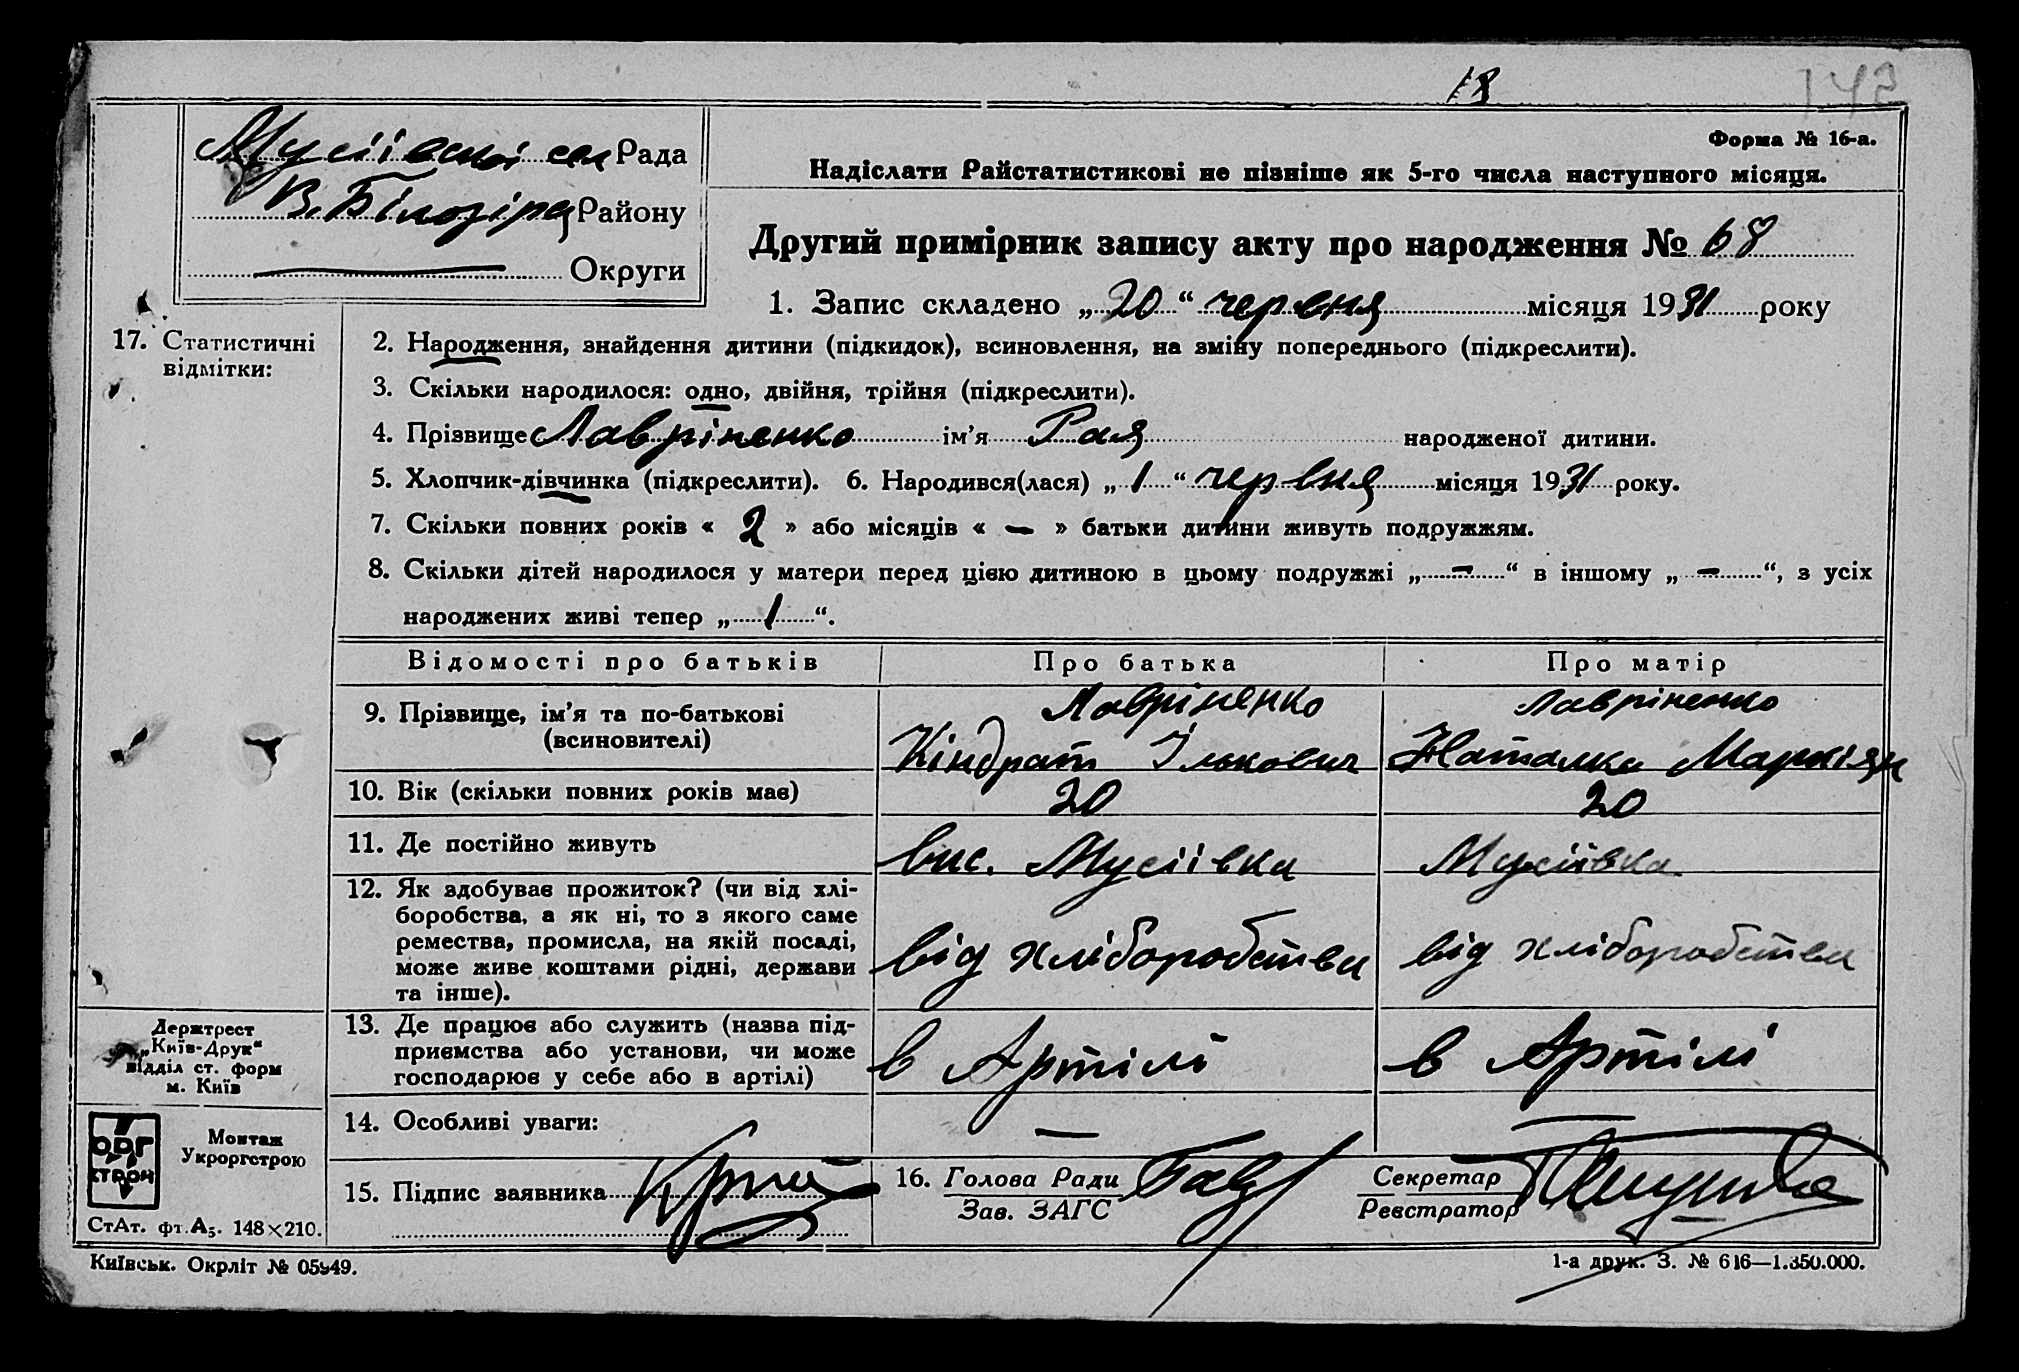 18 142
Форма № 16-а.
Мусіївської сел Рада
Надіслати Райстатистикові не пізніше як 5-го числа наступного місяця.
В. Білозірц Району
Другий примірник запису акту про народження № 68
Округи
1. Запис складено „20“ червня місяця 1931 року
17. Статистичні
відмітки:
2. Народження, знайдення дитини (підкидок), всиновлення, на зміну попереднього (підкреслити).
3. Скільки народилося: одно, двійня, трійня (підкреслити).
4. Прізвище Лавріненко ім’я Рая народженої дитини.
5. Хлопчик-дівчинка (підкреслити). 6. Народився(лася) „1“ червня місяця 1931 року.
7. Скільки повних років « 2 » або місяців « – » батьки дитини живуть подружжям.
8. Скільки дітей народилося у матери перед цією дитиною в цьому подружжі „–“ в іншому „–“, з усіх
народжених живі тепер „1“.
Відомості про батьків Про батька Про матір
9. Прізвище, ім’я та по-батькові
(всиновителі)
Лавріненко
Кіндрат Ількович
Лавріненко
Наталка Маркіян
10. Вік (скільки повних років має) 20 20
11. Де постійно живуть вис. Мусіївка Мусіївка
12. Як здобуває прожиток? (чи від хлі-
боробства, а як ні, то з якого саме
ремества, промисла, на якій посаді,
може живе коштами рідні, держави
та інше).
від хліборобства від хліборобства
13. Де працює або служить (назва під-
приємства або установи, чи може
господарює у себе або в артілі)
в Артілі в Артілі
14. Особливі уваги: —
15. Підпис заявника
16. Голова Ради
Зав. ЗАГС
Секретар
Реєстратор
Держтрест
„Київ-Друк“
відділ ст. форм
м. Київ
ОРГ
СТРОМ
Монтаж
Укроргстрою
СтАт. фт. А5. 148×210.
Київськ. Окрліт № 05949.
1-а друк. З. № 616—1.350.000.